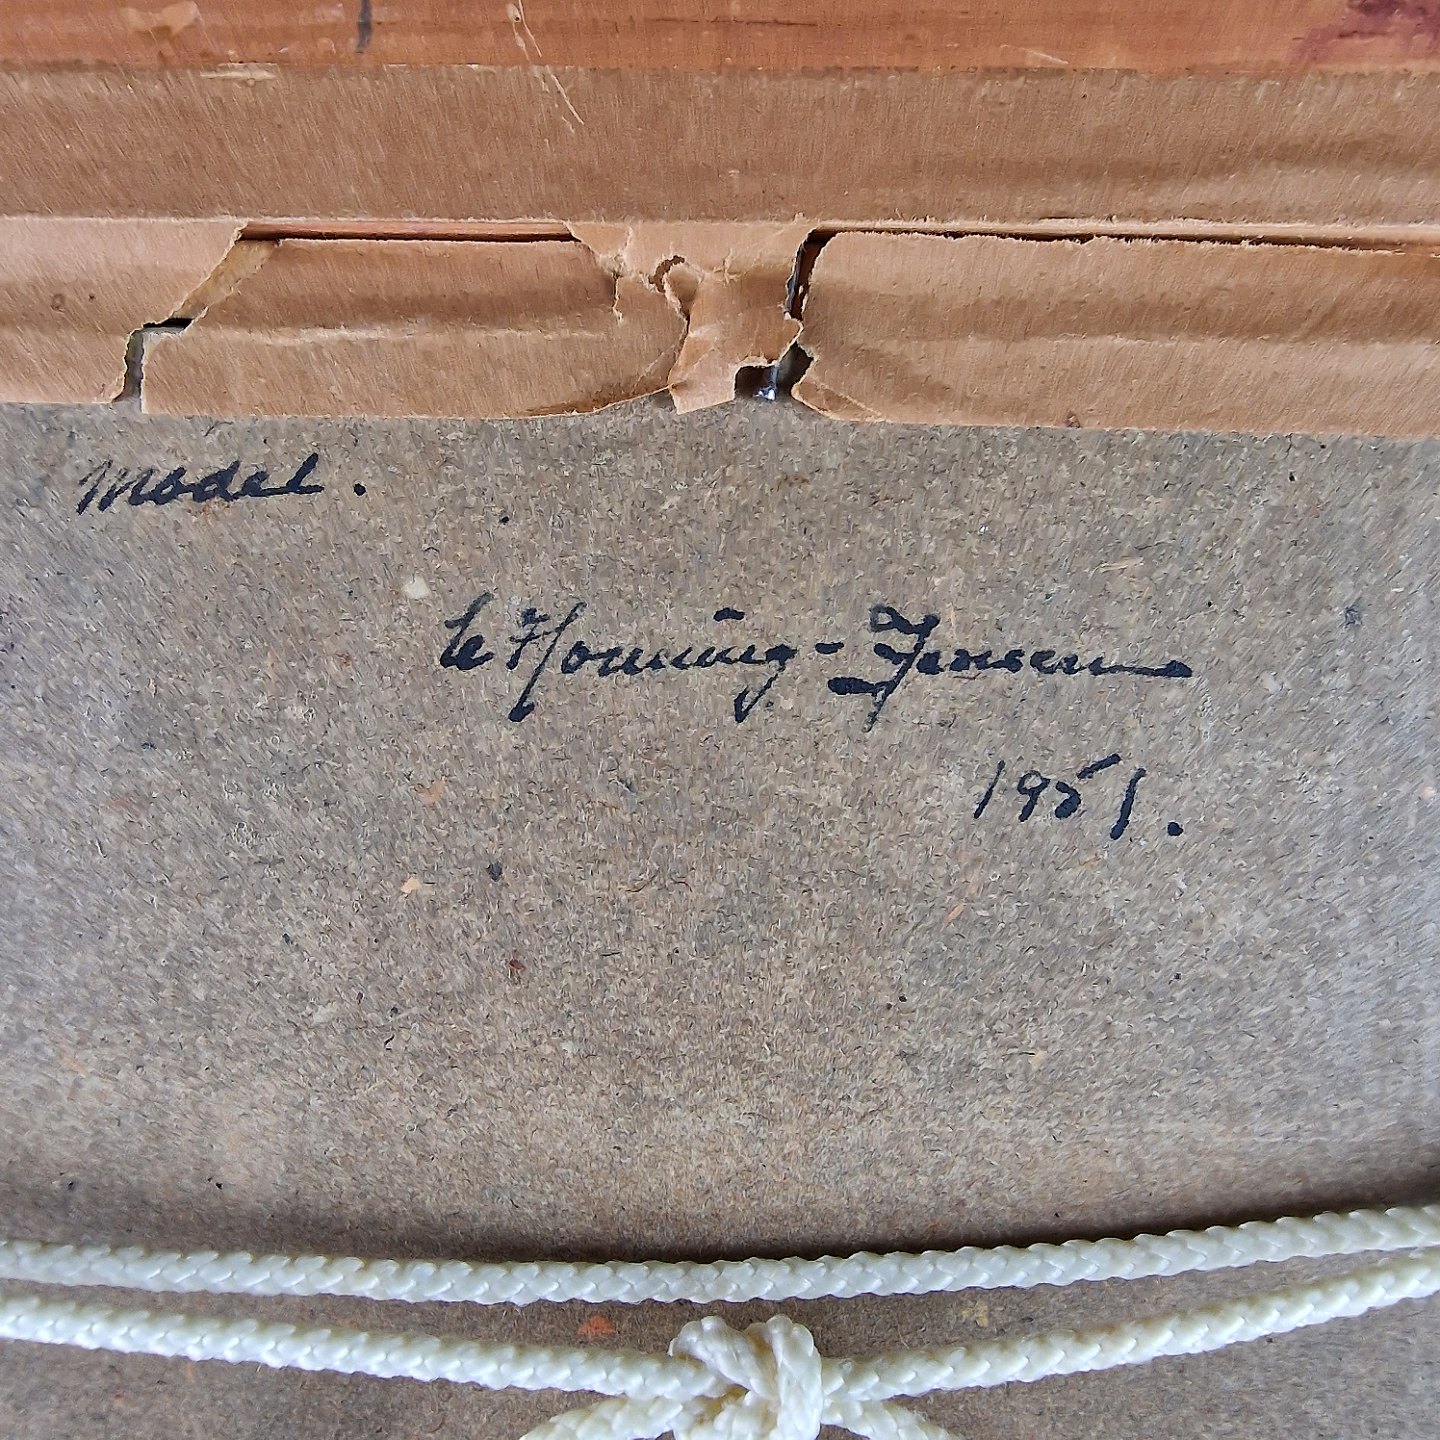 Model.
C Hornung-Jensen
1951.